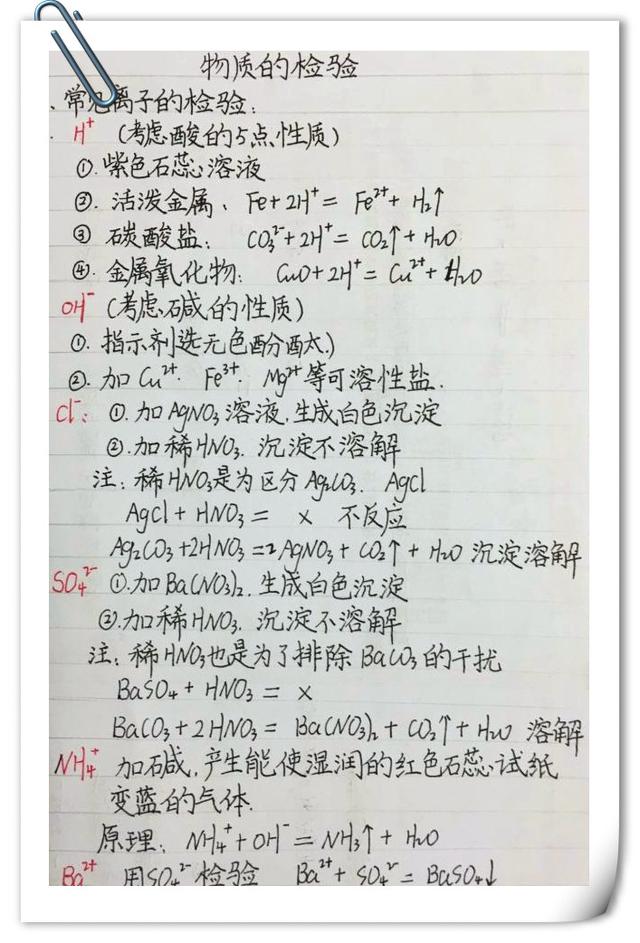 物质的检验
、常见离子的检验:
H⁺ (考虑酸的5点性质)
①. 紫色石蕊溶液
②. 活泼金属、 Fe+2H⁺= Fe²⁺+ H₂↑
③ 碳酸盐: CO₃²⁻+2H⁺= CO₂↑+H₂O
④. 金属氧化物: CuO+2H⁺= Cu²⁺+H₂O
OH⁻ (考虑碱的性质)
①. 指示剂(选无色酚酞)
②. 加 Cu²⁺. Fe³⁺. Mg²⁺等可溶性盐.
Cl⁻: ①.加AgNO₃溶液,生成白色沉淀
②.加稀HNO₃. 沉淀不溶解
注: 稀HNO₃是为区分Ag₂CO₃. AgCl
AgCl + HNO₃ = × 不反应
Ag₂CO₃+2HNO₃=2AgNO₃+CO₂↑+H₂O 沉淀溶解
SO₄²⁻ ①.加Ba(NO₃)₂. 生成白色沉淀
②.加稀HNO₃. 沉淀不溶解
注: 稀HNO₃也是为了排除BaCO₃的干扰
BaSO₄+HNO₃= ×
BaCO₃+2HNO₃= Ba(NO₃)₂+CO₂↑+H₂O 溶解
NH₄⁺ 加碱,产生能使湿润的红色石蕊试纸
变蓝的气体.
原理: NH₄⁺+OH⁻=NH₃↑+H₂O
Ba²⁺ 用SO₄²⁻检验 Ba²⁺+SO₄²⁻=BaSO₄↓